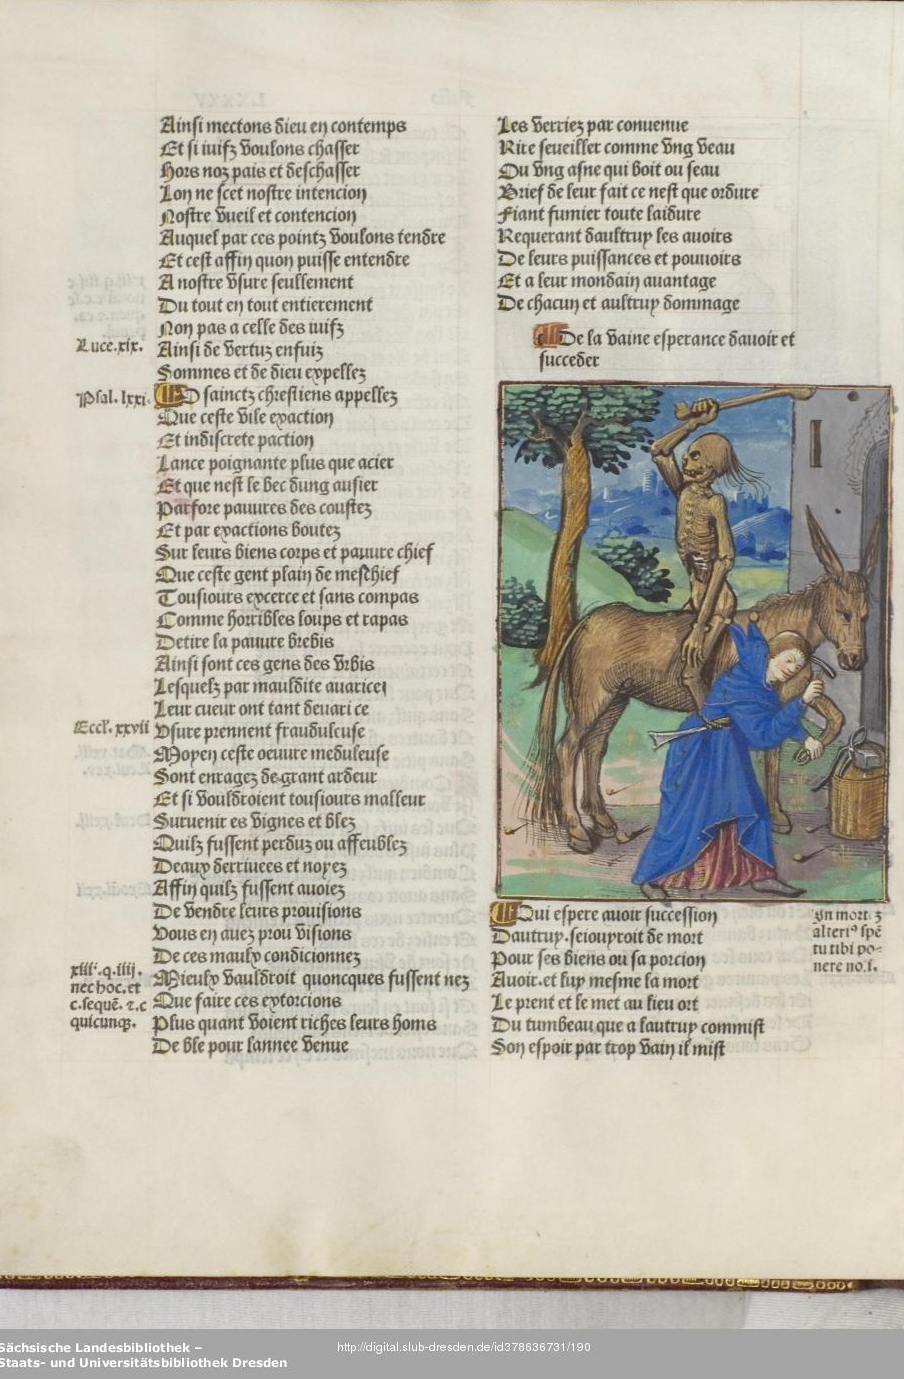 Ainsi mectons dieu en contemps
Et si iuifz voulons chasser
Hors noz pais et deschasser
Lon ne scet nostre intencion
Nostre vueil et contencion
Auquel par ces pointz voulons tendre
Et cest affin quon puisse entendre
A nostre vsure seullement
Du tout en tout entierement
Non pas a celle des iuifz
Luce.xix.
Ainsi de vertuz enfuiz
Sommes et de dieu expellez
Psal. lxxi.
O sainctz chrestiens appellez
Que ceste vile exaction
Et indiscrete paction
Lance poignante plus que acier
Et que nest le bec dung ausier
Parfore pauures des coustez
Et par exactions boutez
Sur leurs biens corps et pauure chief
Que ceste gent plain de meschief
Tousiours excerce et sans compas
Comme horribles loups et rapas
Detire la pauure brebis
Ainsi sont ces gens des vrbis
Lesquelz par mauldite auarice
Leur cueur ont tant deuari ce
Eccl'. xxvii
Vsure prennent frauduleuse
Moyen ceste oeuure meduleuse
Sont enragez de grant ardeur
Et si vouldroient tousiours malleur
Suruenir es vignes et blez
Quilz fussent perduz ou affeublez
Deaux derriuees et noyez
Affin quilz fussent auoiez
De vendre leurs prouisions
Vous en auez prou visions
De ces maulx condicionnez
xiiii'.q.iiij.
nec hoc. et
c.sequē. ⁊.c
quicunqꝫ.
Mieulx vauldroit quoncques fussent nez
Que faire ces extorcions
Plus quant voient riches leurs homs
De ble pour lannee venue
Les verriez par conuenue
Rire seueiller comme vng veau
Ou vng asne qui boit ou seau
Brief de leur fait ce nest que ordure
Fiant fumier toute laidure
Requerant daultruy les auoirs
De leurs puissances et pouuoirs
Et a leur mondain auantage
De chacun et aultruy dommage
De la vaine esperance dauoir et
succeder
Qui espere auoir succession
Dautruy.seiouyroit de mort
Pour ses biens ou sa porcion
Auoir.et luy mesme la mort
Le prent et le met au lieu ort
Du tumbeau que a lautruy commist
Son espoir par trop vain il mist
In mort. ꝫ
alteri⁹ spē
tu tibi po-
nere no.l.
Sächsische Landesbibliothek –
Staats- und Universitätsbibliothek Dresden
http://digital.slub-dresden.de/id378636731/190